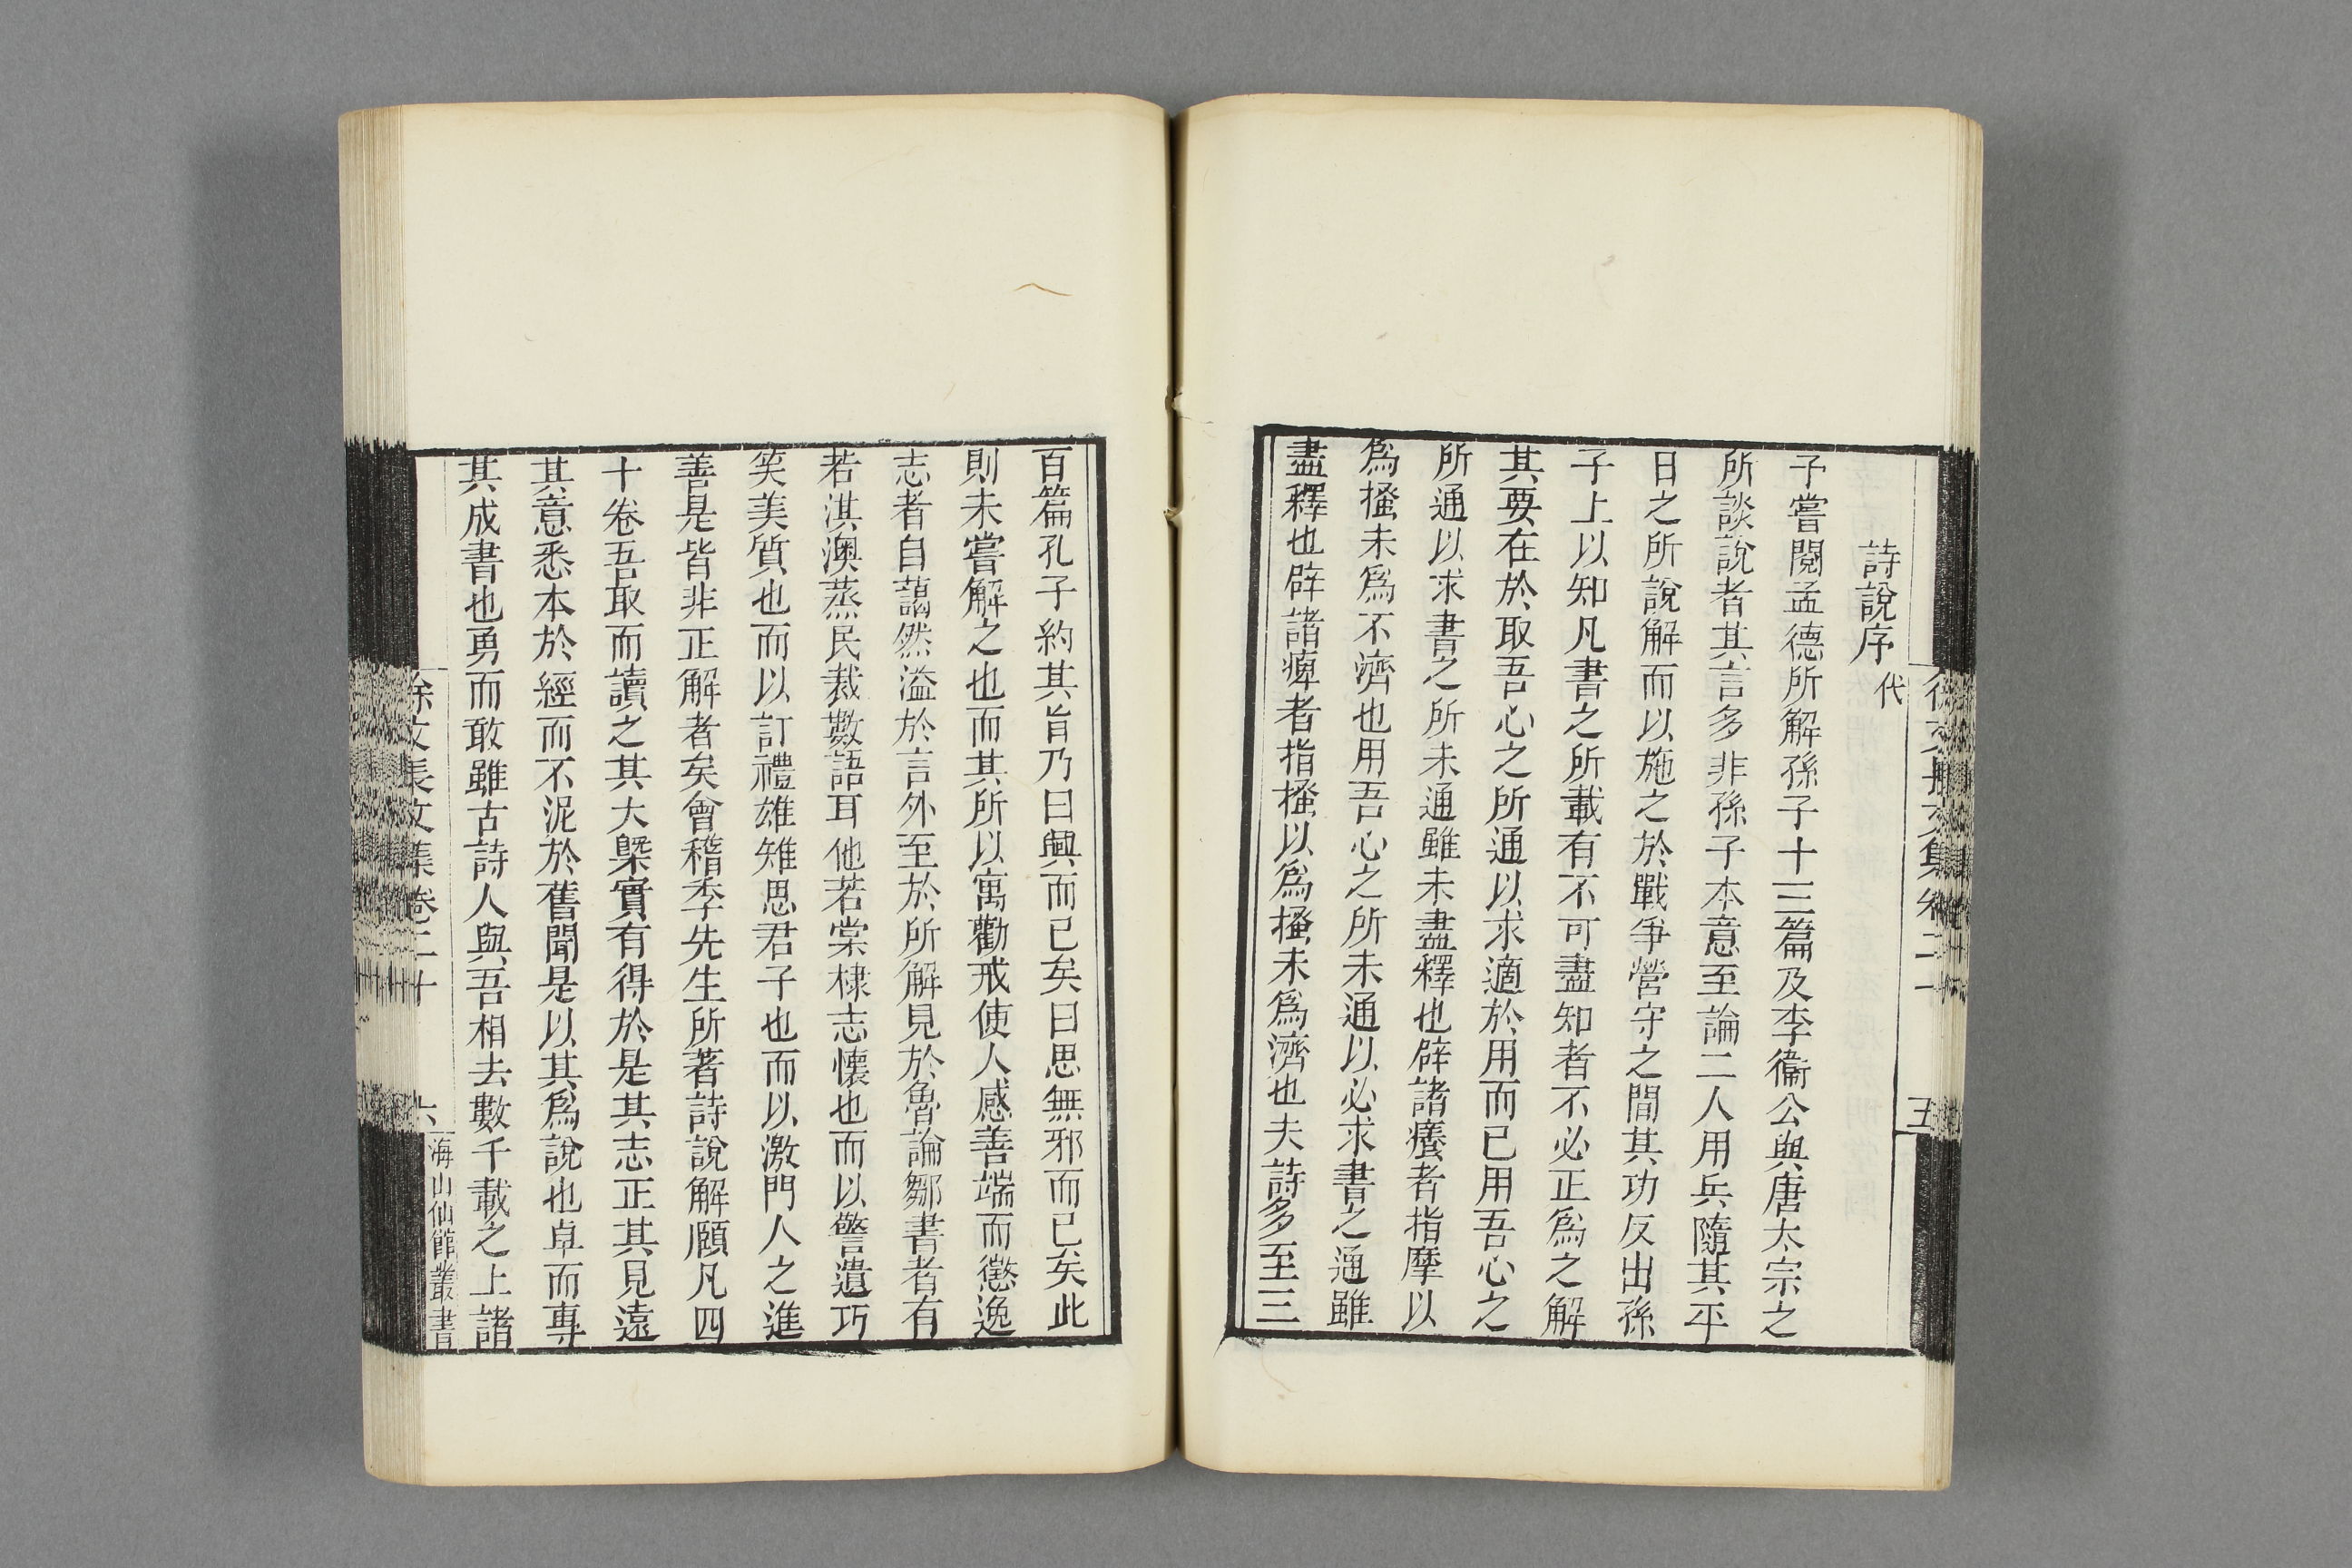 詩說序代
予嘗閱孟德所解孫子十三篇及李衞公與唐太宗之
所談說者其言多非孫子本意至論二人用兵隨其平
日之所說解而以施之於戰爭營守之間其功反出孫
子上以知凡書之所載有不可盡知者不必正爲之解
其要在於取吾心之所通以求適於用而已用吾心之
所通以求書之所未通雖未盡釋也辟諸癢者指摩以
爲搔未爲不濟也用吾心之所未通以必求書之通雖
盡釋也辟諸痺者指搔以爲搔未爲濟也夫詩多至三
五
百篇孔子約其旨乃曰興而已矣曰思無邪而已矣此
則未嘗解之也而其所以寓勸戒使人感善端而懲逸
志者自藹然溢於言外至於所解見於魯論鄒書者有
若淇澳蒸民裁數語耳他若棠棣志懷也而以警遺巧
笑美質也而以訂禮雄雉思君子也而以激門人之進
善是皆非正解者矣會稽季先生所著詩說解頤凡四
十卷吾取而讀之其大槩實有得於是其志正其見遠
其意悉本於經而不泥於舊聞是以其爲說也卓而專
其成書也勇而敢雖古詩人與吾相去數千載之上諸
徐文長文集卷二十 六 海山仙館叢書